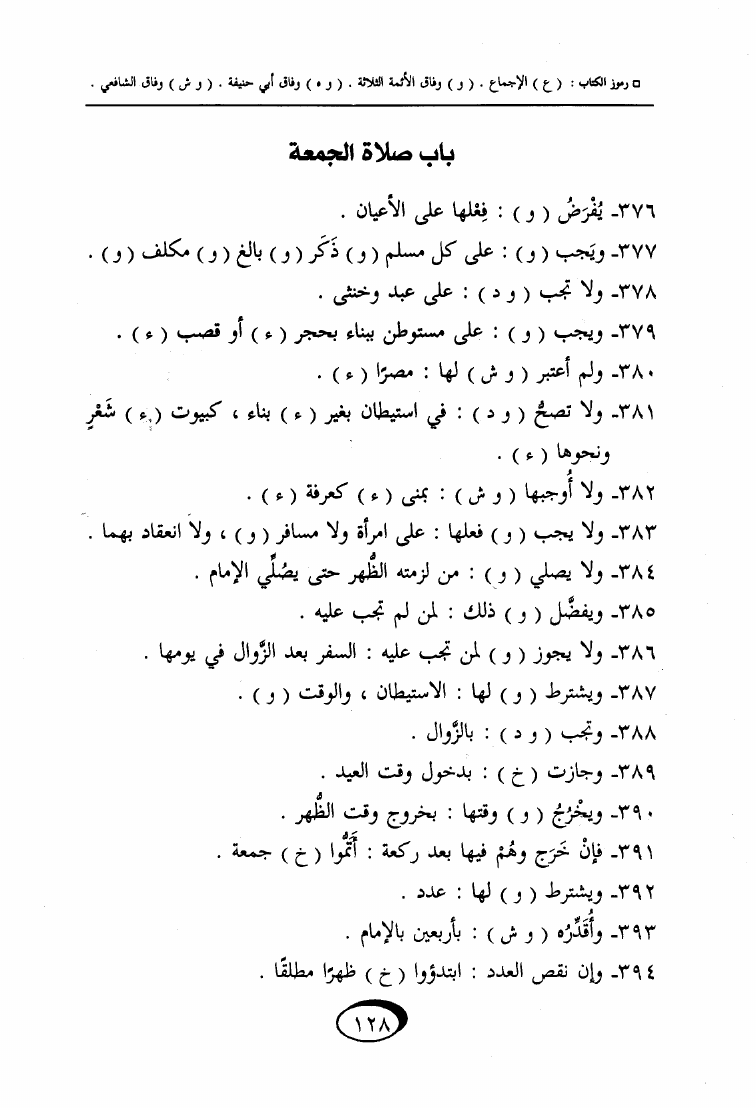 □ رموز الكتاب : ( ع ) الإجماع . ( و ) وفاق الأئمة الثلاثة . ( و ه ) وفاق أبي حنيفة . ( و ش ) وفاق الشافعي .
باب صلاة الجمعة
٣٧٦ـ يُفْرَضُ ( و ) : فِعْلها على الأعيان .
٣٧٧ـ ويَجب ( و ) : على كل مسلم ( و ) ذَكَر ( و ) بالغ ( و ) مكلف ( و ) .
٣٧٨ـ ولا تجب ( و د ) : على عبد وخنثى .
٣٧٩ـ ويجب ( و ) : على مستوطن ببناء بحجر ( ء ) أو قصب ( ء ) .
٣٨٠ـ ولم أعتبر ( و ش ) لها : مصرًا ( ء ) .
٣٨١ـ ولا تصحُّ ( و د ) : في استيطان بغير ( ء ) بناء ، كبيوت ( ء ) شَعْرٍ
ونحوها ( ء ) .
٣٨٢ـ ولا أُوجبها ( و ش ) : بمنى ( ء ) كعرفة ( ء ) .
٣٨٣ـ ولا يجب ( و ) فعلها : على امرأة ولا مسافر ( و ) ، ولا انعقاد بهما .
٣٨٤ـ ولا يصلي ( و ) : من لزمته الظُّهر حتى يصُلِّي الإمام .
٣٨٥ـ ويفضَّل ( و ) ذلك : لمن لم تجب عليه .
٣٨٦ـ ولا يجوز ( و ) لمن تجب عليه : السفر بعد الزَّوال في يومها .
٣٨٧ـ ويشترط ( و ) لها : الاستيطان ، والوقت ( و ) .
٣٨٨ـ وتجب ( و د ) : بالزَّوال .
٣٨٩ـ وجازت ( خ ) : بدخول وقت العيد .
٣٩٠ـ ويخْرُجُ ( و ) وقتها : بخروج وقت الظُّهر .
٣٩١ـ فإنْ خَرَج وهُمْ فيها بعد ركعة : أَتَمُّوا ( خ ) جمعة .
٣٩٢ـ ويشترط ( و ) لها : عدد .
٣٩٣ـ وأُقَدِّرُه ( و ش ) : بأربعين بالإمام .
٣٩٤ـ وإن نقص العدد : ابتدؤوا ( خ ) ظهرًا مطلقًا .
١٢٨